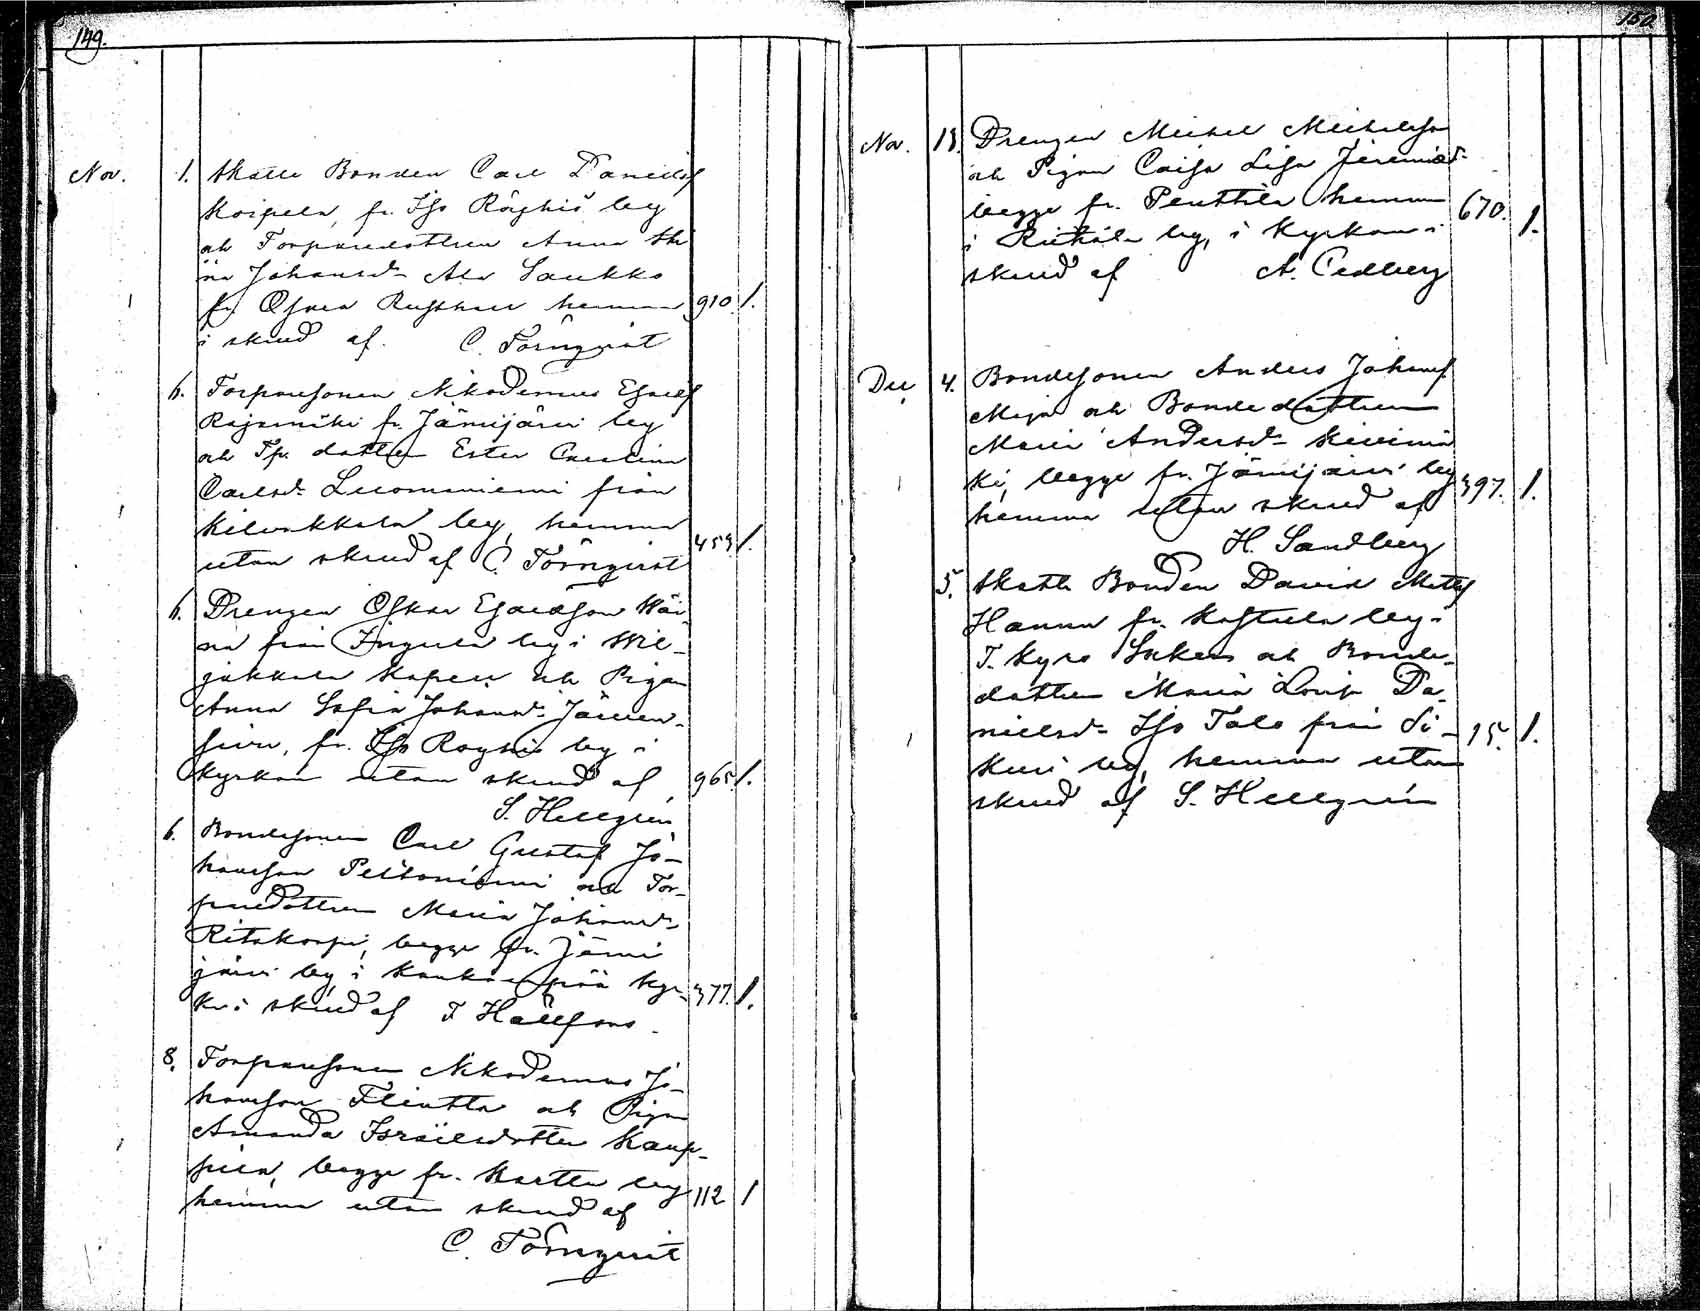 149.
Nov. 1. Skatte Bonden Carl Danielsf
Koipela, fr. Iso Röyhiö by
och Torparedottren Anna Sti
na Johansd. Ala Saukko
fr. Osara Rusthåll hemma 910. 1.
i skrud af. C. Törnqvist
6. Torparsonen Nikodemus Esaiæf
Rajamäki fr. Jämijärvi by
och Tp. dottern Ester Carolina
Carlsd. Luomaniemi från
Kilvakkala by, hemma
utan skrud af C. Törnqvist 459 1.
6. Drengen Oskar Esaiæson Wäi-
nä från Inguela by i Wil-
jakkala Kapell och Pigan
Anna Sofia Johansd. Järven-
sivu, fr. Iso Röyhiö by i
kyrkan utan skrud af 965 1.
S. Hellgrén
6. Bondesonen Carl Gustaf Jo-
hansson Peltoniemi och Tor-
paredottren Maria Johansd.
Ritakorpi, begge fr. Jämi
järvi by i Kankaanpää kyr- 377. 1.
ka i skrud af F Hällfors.
8. Torparsonen Nikodemus Jo-
hansson Flinttu och Pigan
Amanda Israëlsdotter Kaup-
pila, begge fr. Karttu by 112 1
hemma utan skrud af
C. Törnqvist
150.
Nov. 13. Drengen Michel Michelsson
och Pigan Caisa Lisa Jeremiæd.
begge fr. Penttilä hemman 670. 1.
i Riitiala by, i Kyrkan i
skrud af A. Cedberg
Dec. 4. Bondesonen Anders Johansf.
Meja och Bondedottren
Maria Andersd. Kiviniä
ki, begge fr. Jämijärvi by 397. 1.
hemma utan skrud af
H. Sandberg
5. Skatte Bonden David Mattsf
Hannu fr. Kostula by i
T. Kyro Socken och Bonde-
dottren Maria Lovisa Da-
nielsd. Iso Talo från Si- 95. 1.
kuri by, hemma utan
skrud af S. Hellgrén